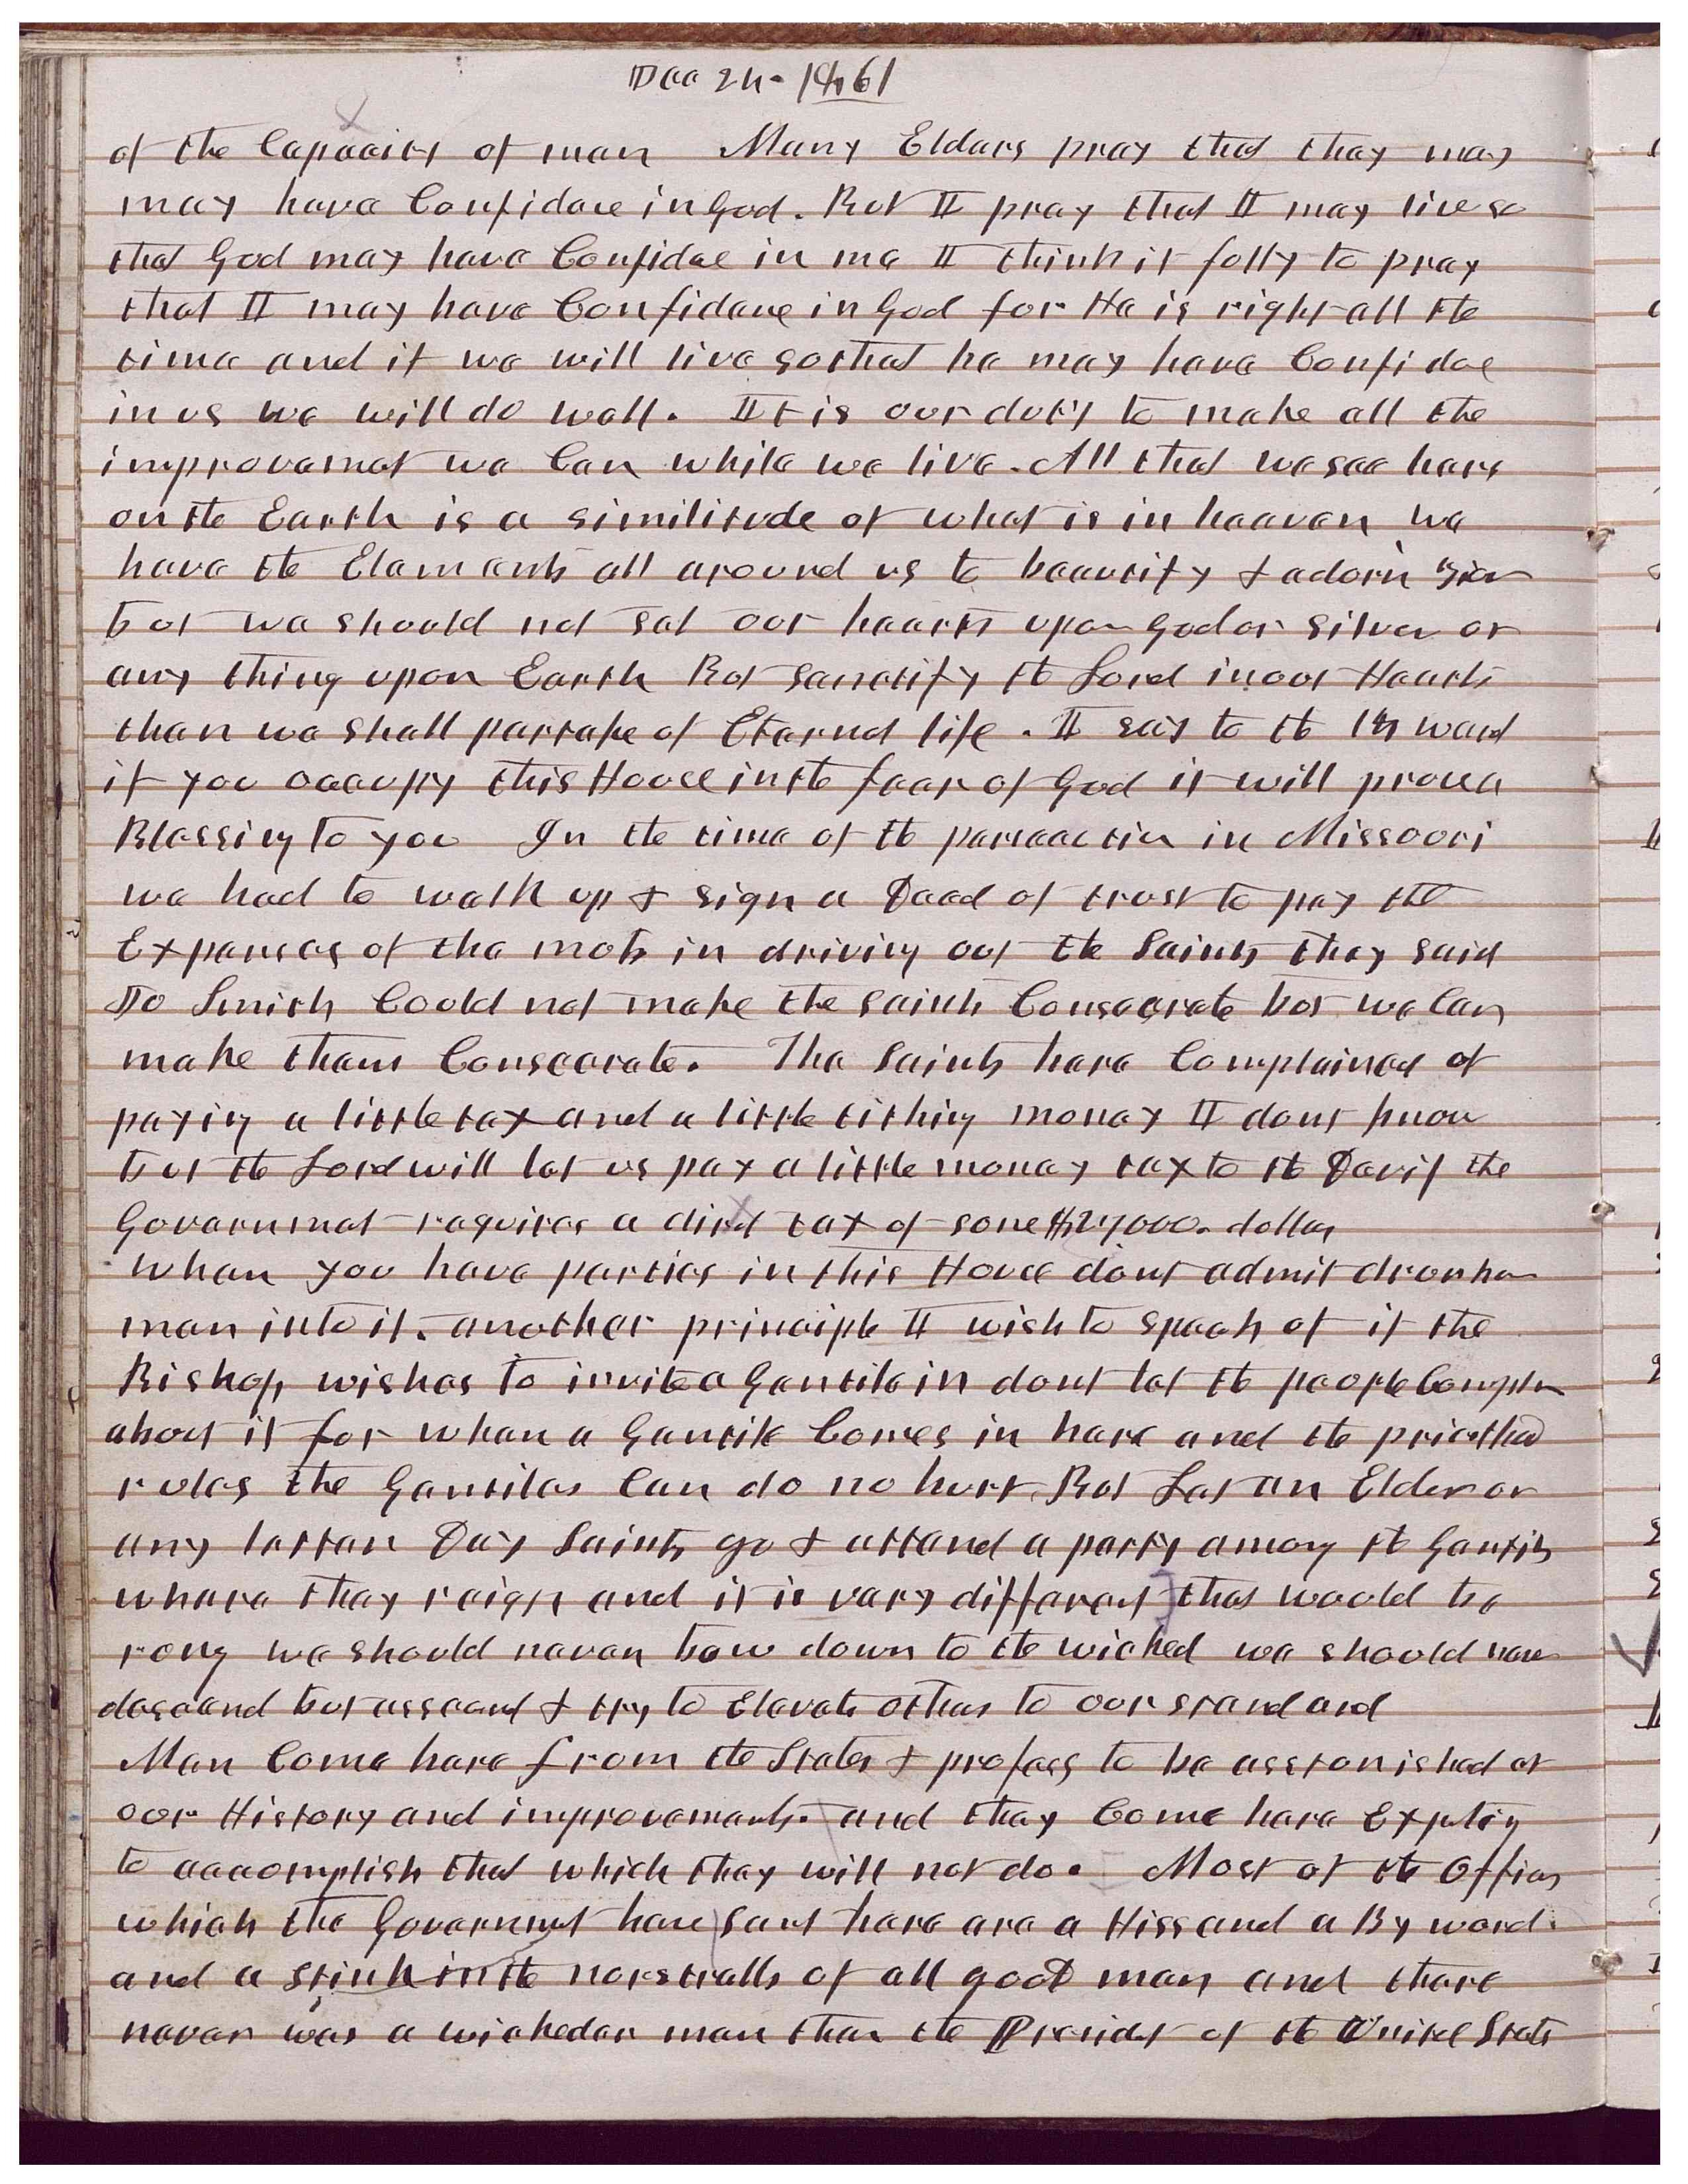 Dec 24- 1861
of the Capacity of man Many Elders pray that they may
may have Confidace in God. But I pray that I may live so
that God may have Confidae in me I think it folly to pray
that I may have Confidence in God for He is right all the
time and if we will live so that he may have Confidae
in us we will do well. It is our duty to make all the
improvemet we Can while we live. All that we see here
on the Earth is a similitude of what is in heaven we
have the Elements all around us to beautify & adorn Zion
but we should not set our hearts upon God or silver or
any thing upon Earth But sanctify the Lord in our Hearts
then we shall partake of Eternal life. I say to the 14 ward
if you occupy this House in the fear of God it will prove a
Blessing to you In the time of the persecution in Missouri
we had to walk up & sign a Deed of trust to pay the
Expenses of the mob in driving out the Saints they said
Jo Smith Could not make the saints Consecrate but we Can
make them Consecrate. The Saints have Complained of
paying a little tax and a little tithing money I dont know
but the Lord will let us pay a little money tax to the Devil the
Governmet requires a diret tax of some $27000. dollars
when you have parties in this House dont admit drunken
men into it. another principle I wish to speak of if the
Bishop wishes to invite a Gentile in dont let the people Complain
about it for when a Gentile Comes in here and the priesthood
rules the Gentiles Can do no hurt But Let an Elder or
any latter Day Saints go & attend a party among the Gentils
where they reign and it is very different that would be
rong we should never bow down to the wicked we should never
descend but assend & try to Elevate others to our standard
Men Come here from the States & profess to be asstonished at
our History and improvements. and they Come here Expting
to accomplish that which they will not do. Most of the Offices
which the Government have sent here are a Hiss and a By word
and a stink in the norstralls of all good men and there
never was a wickeder man than the Presidet of the United State